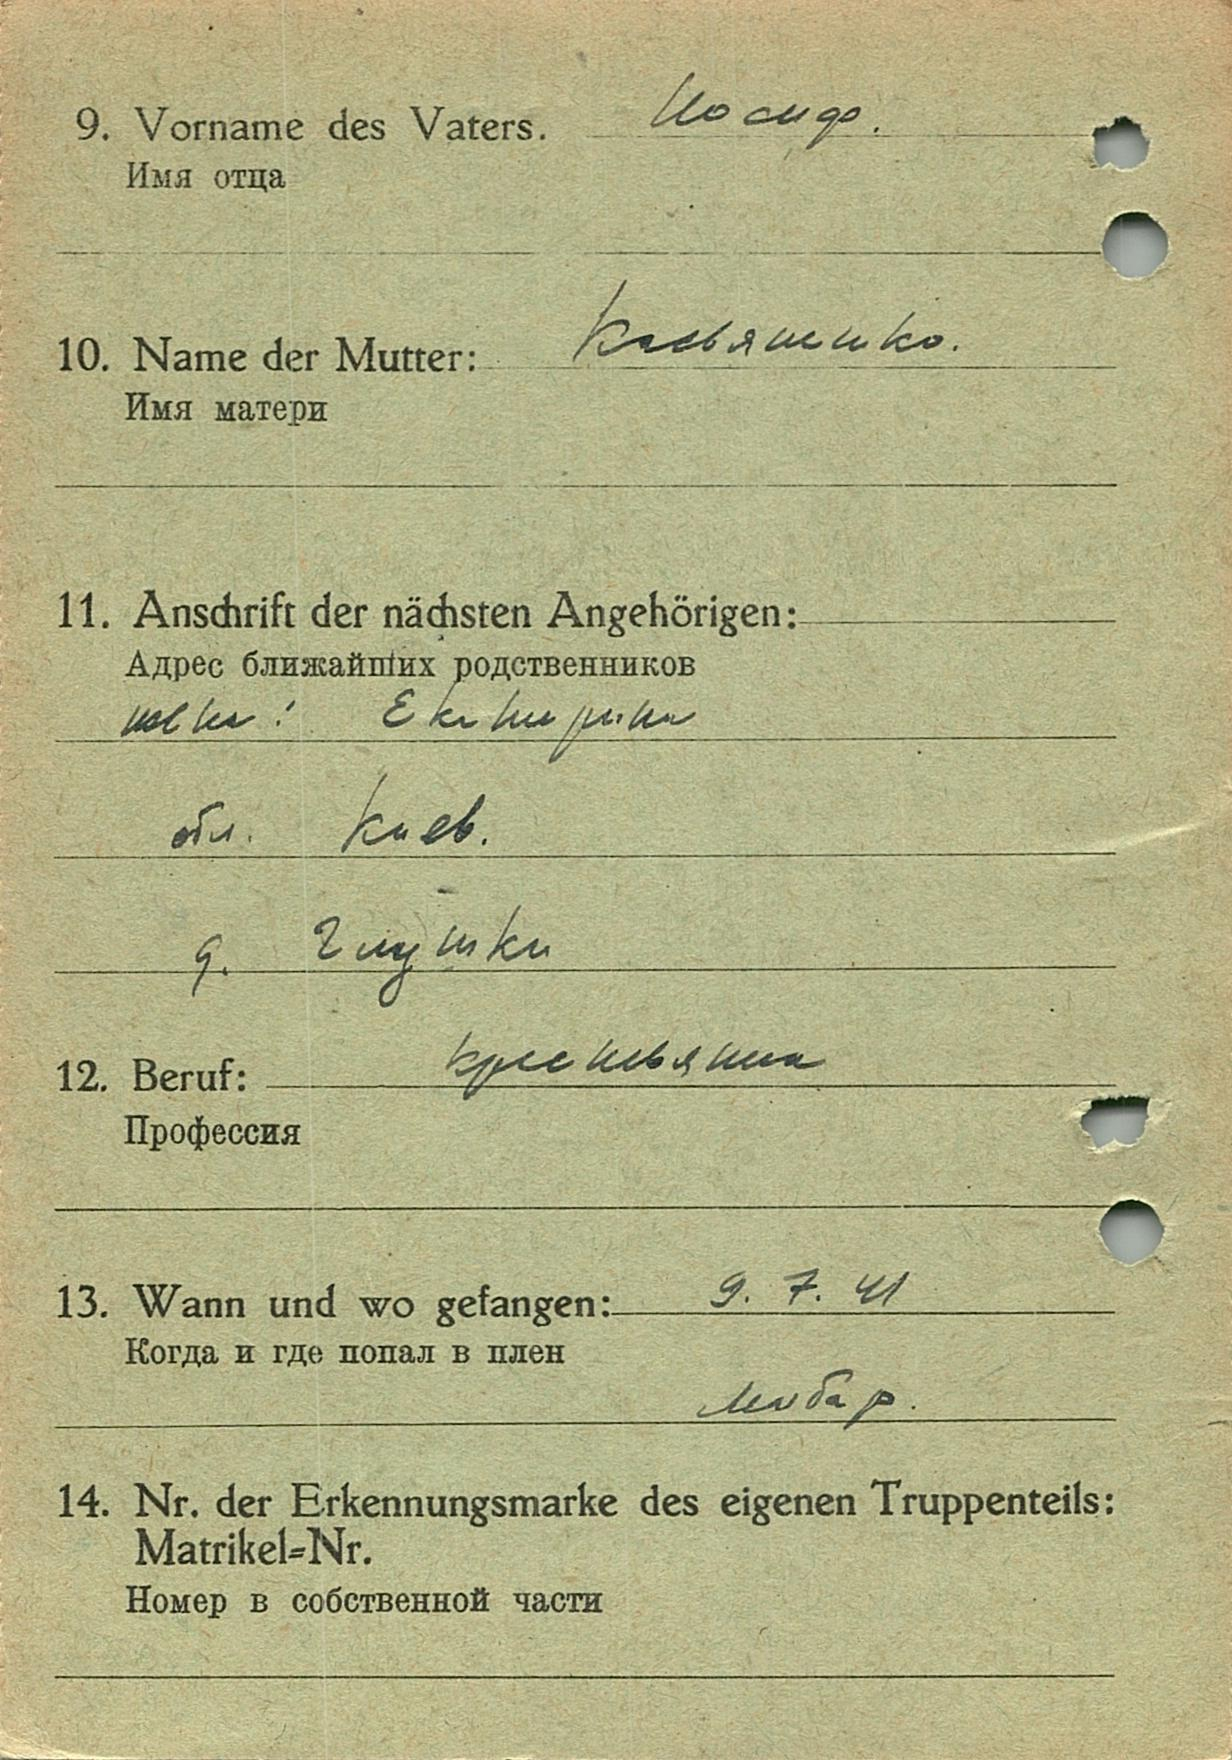 9. Vorname des Vaters. Иосиф.
Имя отца
10. Name der Mutter: Касьяненко.
Имя матери
11. Anschrift der nächsten Angehörigen:
Адрес ближайших родственников
жена: Екатерина
обл. Киев.
д. Глушки
12. Beruf: крестьянин
Профессия
13. Wann und wo gefangen: 9. 7. 41
Когда и где попал в плен
14. Nr. der Erkennungsmarke des eigenen Truppenteils:
Matrikel=Nr.
Номер в собственной части